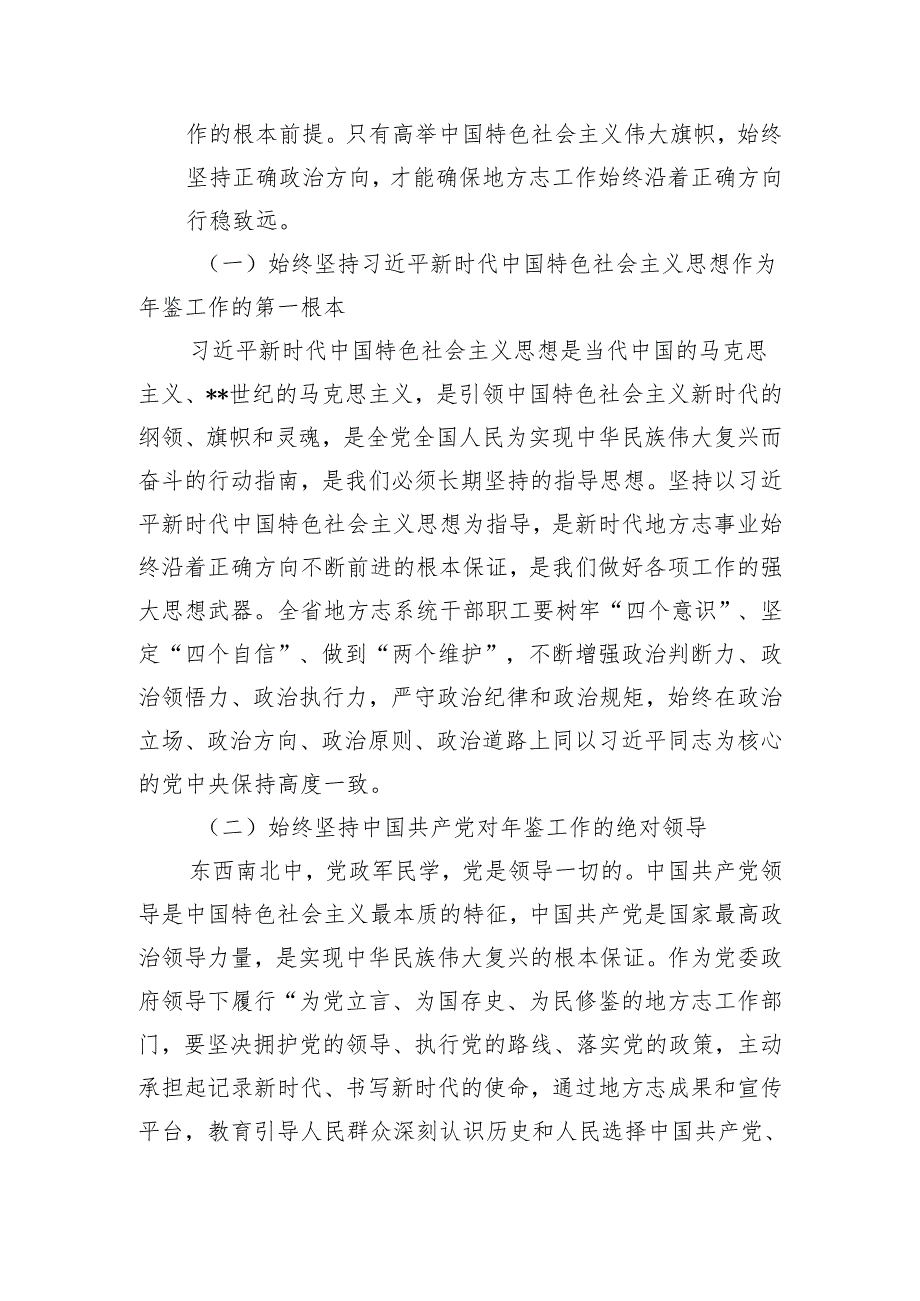 作的根本前提。只有高举中国特色社会主义伟大旗帜，始终
坚持正确政治方向，才能确保地方志工作始终沿着正确方向
行稳致远。
（一）始终坚持习近平新时代中国特色社会主义思想作为
年鉴工作的第一根本
习近平新时代中国特色社会主义思想是当代中国的马克思
主义、**世纪的马克思主义，是引领中国特色社会主义新时代的
纲领、旗帜和灵魂，是全党全国人民为实现中华民族伟大复兴而
奋斗的行动指南，是我们必须长期坚持的指导思想。坚持以习近
平新时代中国特色社会主义思想为指导，是新时代地方志事业始
终沿着正确方向不断前进的根本保证，是我们做好各项工作的强
大思想武器。全省地方志系统干部职工要树牢“四个意识”、坚
定“四个自信”、做到“两个维护”，不断增强政治判断力、政
治领悟力、政治执行力，严守政治纪律和政治规矩，始终在政治
立场、政治方向、政治原则、政治道路上同以习近平同志为核心
的党中央保持高度一致。
（二）始终坚持中国共产党对年鉴工作的绝对领导
东西南北中，党政军民学，党是领导一切的。中国共产党领
导是中国特色社会主义最本质的特征，中国共产党是国家最高政
治领导力量，是实现中华民族伟大复兴的根本保证。作为党委政
府领导下履行“为党立言、为国存史、为民修鉴的地方志工作部
门，要坚决拥护党的领导、执行党的路线、落实党的政策，主动
承担起记录新时代、书写新时代的使命，通过地方志成果和宣传
平台，教育引导人民群众深刻认识历史和人民选择中国共产党、